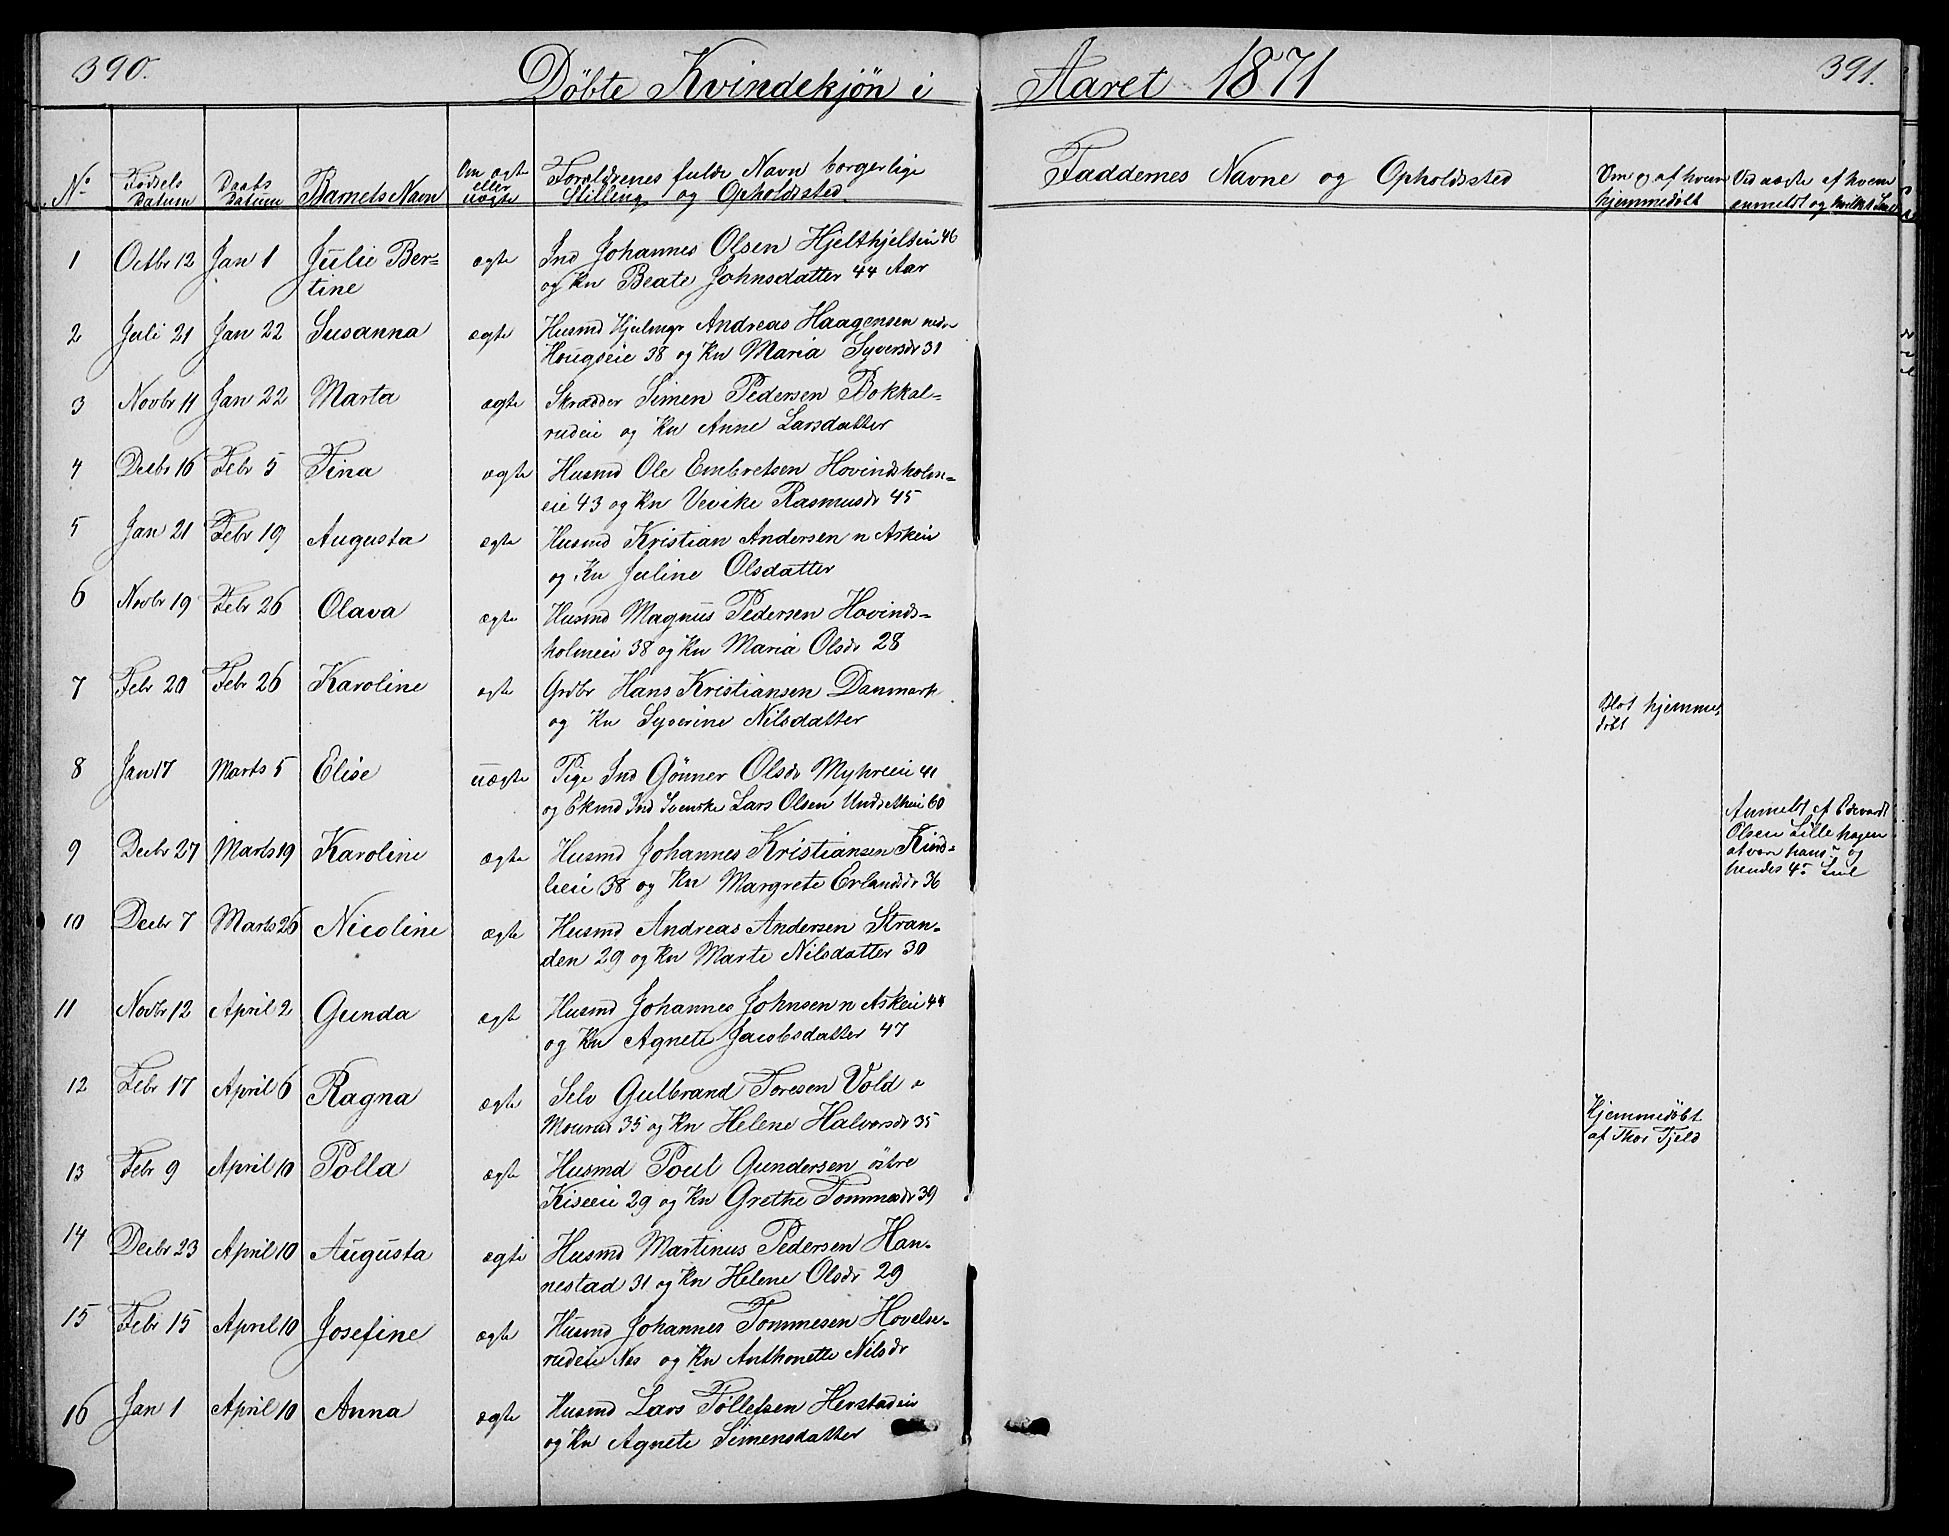 390.
Döbte Kvindekjön i Aaret 1871
391.
No
Födsels Datum
Daabs Datum
Barnets Navn
Om ægte eller uægte
Forældrenes fulde Navn borgerlige Stilling og Opholdssted.
Faddernes Navne og Opholdssted
Om og af hvem hjemmedöbt
Ved uægte af hvem anmeldt og hvilket Leie
1 Octbr 12 Jan 1 Julie Ber= ægte Ind Johannes Olsen Hjelthjelseie 46
tine og Kn Beate Johnsdatter 44 Aar
2 Juli 21 Jan 22 Susanna ægte Husmd Hjulmgr Andreas Haagensen nedr
Hougseie 38 og Kn Maria Syversdr 31
3 Novbr 11 Jan 22 Marta ægte Skrædder Simen Pedersen Bokkal=
rudeie og Kn Anne Larsdatter
4 Decbr 16 Febr 5 Tina ægte Husmd Ole Embretsen Hovindsholm=
eie 43 og Kn Vevike Rasmusdr 45
5 Jan 21 Febr 19 Augusta ægte Husmd Kristian Andersen n Askeie
og Kn Juline Olsdatter
6 Novbr 19 Febr 26 Olava ægte Husmd Magnus Pedersen Hovinds=
holmeie 38 og Kn Maria Olsdr 28
7 Febr 20 Febr 26 Karoline ægte Grdbr Hans Kristiansen Danmark
og Kn Syverine Nilsdatter
Blot hjemme=
döbt
8 Jan 17 Marts 5 Elise uægte Pige Ind Gönner Olsdr Myhreeie 41
og Ekmd Ind Svenske Lars Olsen Undsetheie 60
Anmeldt af Edevardt
Olsen Lillehagen
at være hans og
hendes 4de Leie
9 Decbr 27 Marts 19 Karoline ægte Husmd Johannes Kristiansen Kind=
lieie 38 og Kn Margrete Erlandsdr 36
10 Decbr 7 Marts 26 Nicoline ægte Husmd Andreas Andersen Stran=
den 29 og Kn Marte Nilsdatter 30
11 Novbr 12 April 2 Gunda ægte Husmd Johannes Johnsen n Askeie 44
og Kn Agnete Jacobsdatter 47
12 Febr 17 April 6 Ragna ægte Selv Gulbrand Toresen Vold
35 og Kn Helene Halvorsdr 35
Hjemmedöbt
af Thor Tjeld
13 Febr 9 April 10 Polla ægte Husmd Poul Gundersen östre
Kiseeie 29 og Kn Grethe Tommesdr 39
14 Decbr 23 April 10 Augusta ægte Husmd Martinus Pedersen Han=
nestad 31 og Kn Helene Olsdr 29
15 Febr 15 April 10 Josefine ægte Husmd Johannes Tommesen Hovels=
rudeie Nes og Kn Anthonette Nilsdr
16 Jan 1 April 10 Anna ægte Husmd Lars Töllefsen Herstadeie
og Kn Agnete Simensdatter